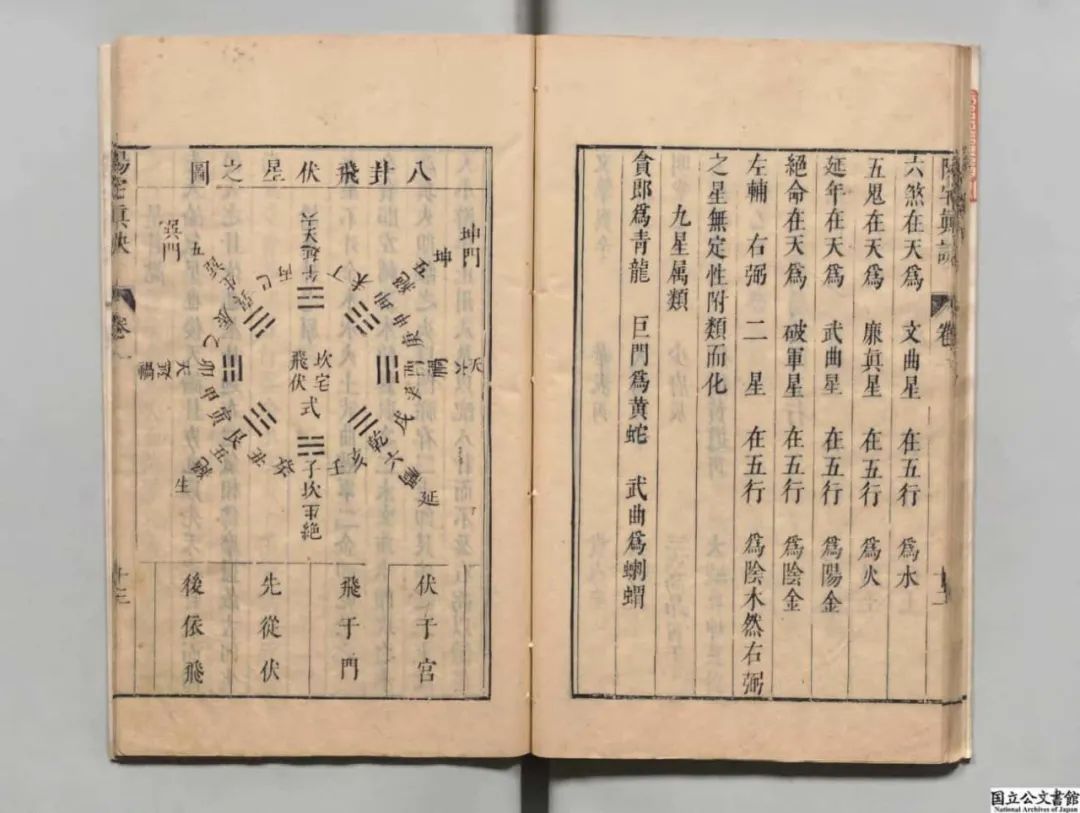 六煞在天爲 文曲星 在五行 爲水
五鬼在天爲 廉眞星 在五行 爲火
延年在天爲 武曲星 在五行 爲陽金
絕命在天爲 破軍星 在五行 爲陰金
左輔 右弼 二星 在五行 爲陰木然右弼
之星無定性附類而化
九星属類
貪郎爲青龍 巨門爲黄蛇 武曲爲蝍蝟
陽宅眞訣
卷
八卦飛伏星之圖
坤門
坤
巽門
五
天六
丁
丙
巳
辰
乙
卯
甲
寅
艮
生
癸
子坎
絕
壬
亥
乾
六
延
戌
酉
庚
申
禍
天
延
坎宅
飛伏
式
伏于宮
飛于門
先從伏
後依飛
十二
国立公文書館
National Archives of Japan